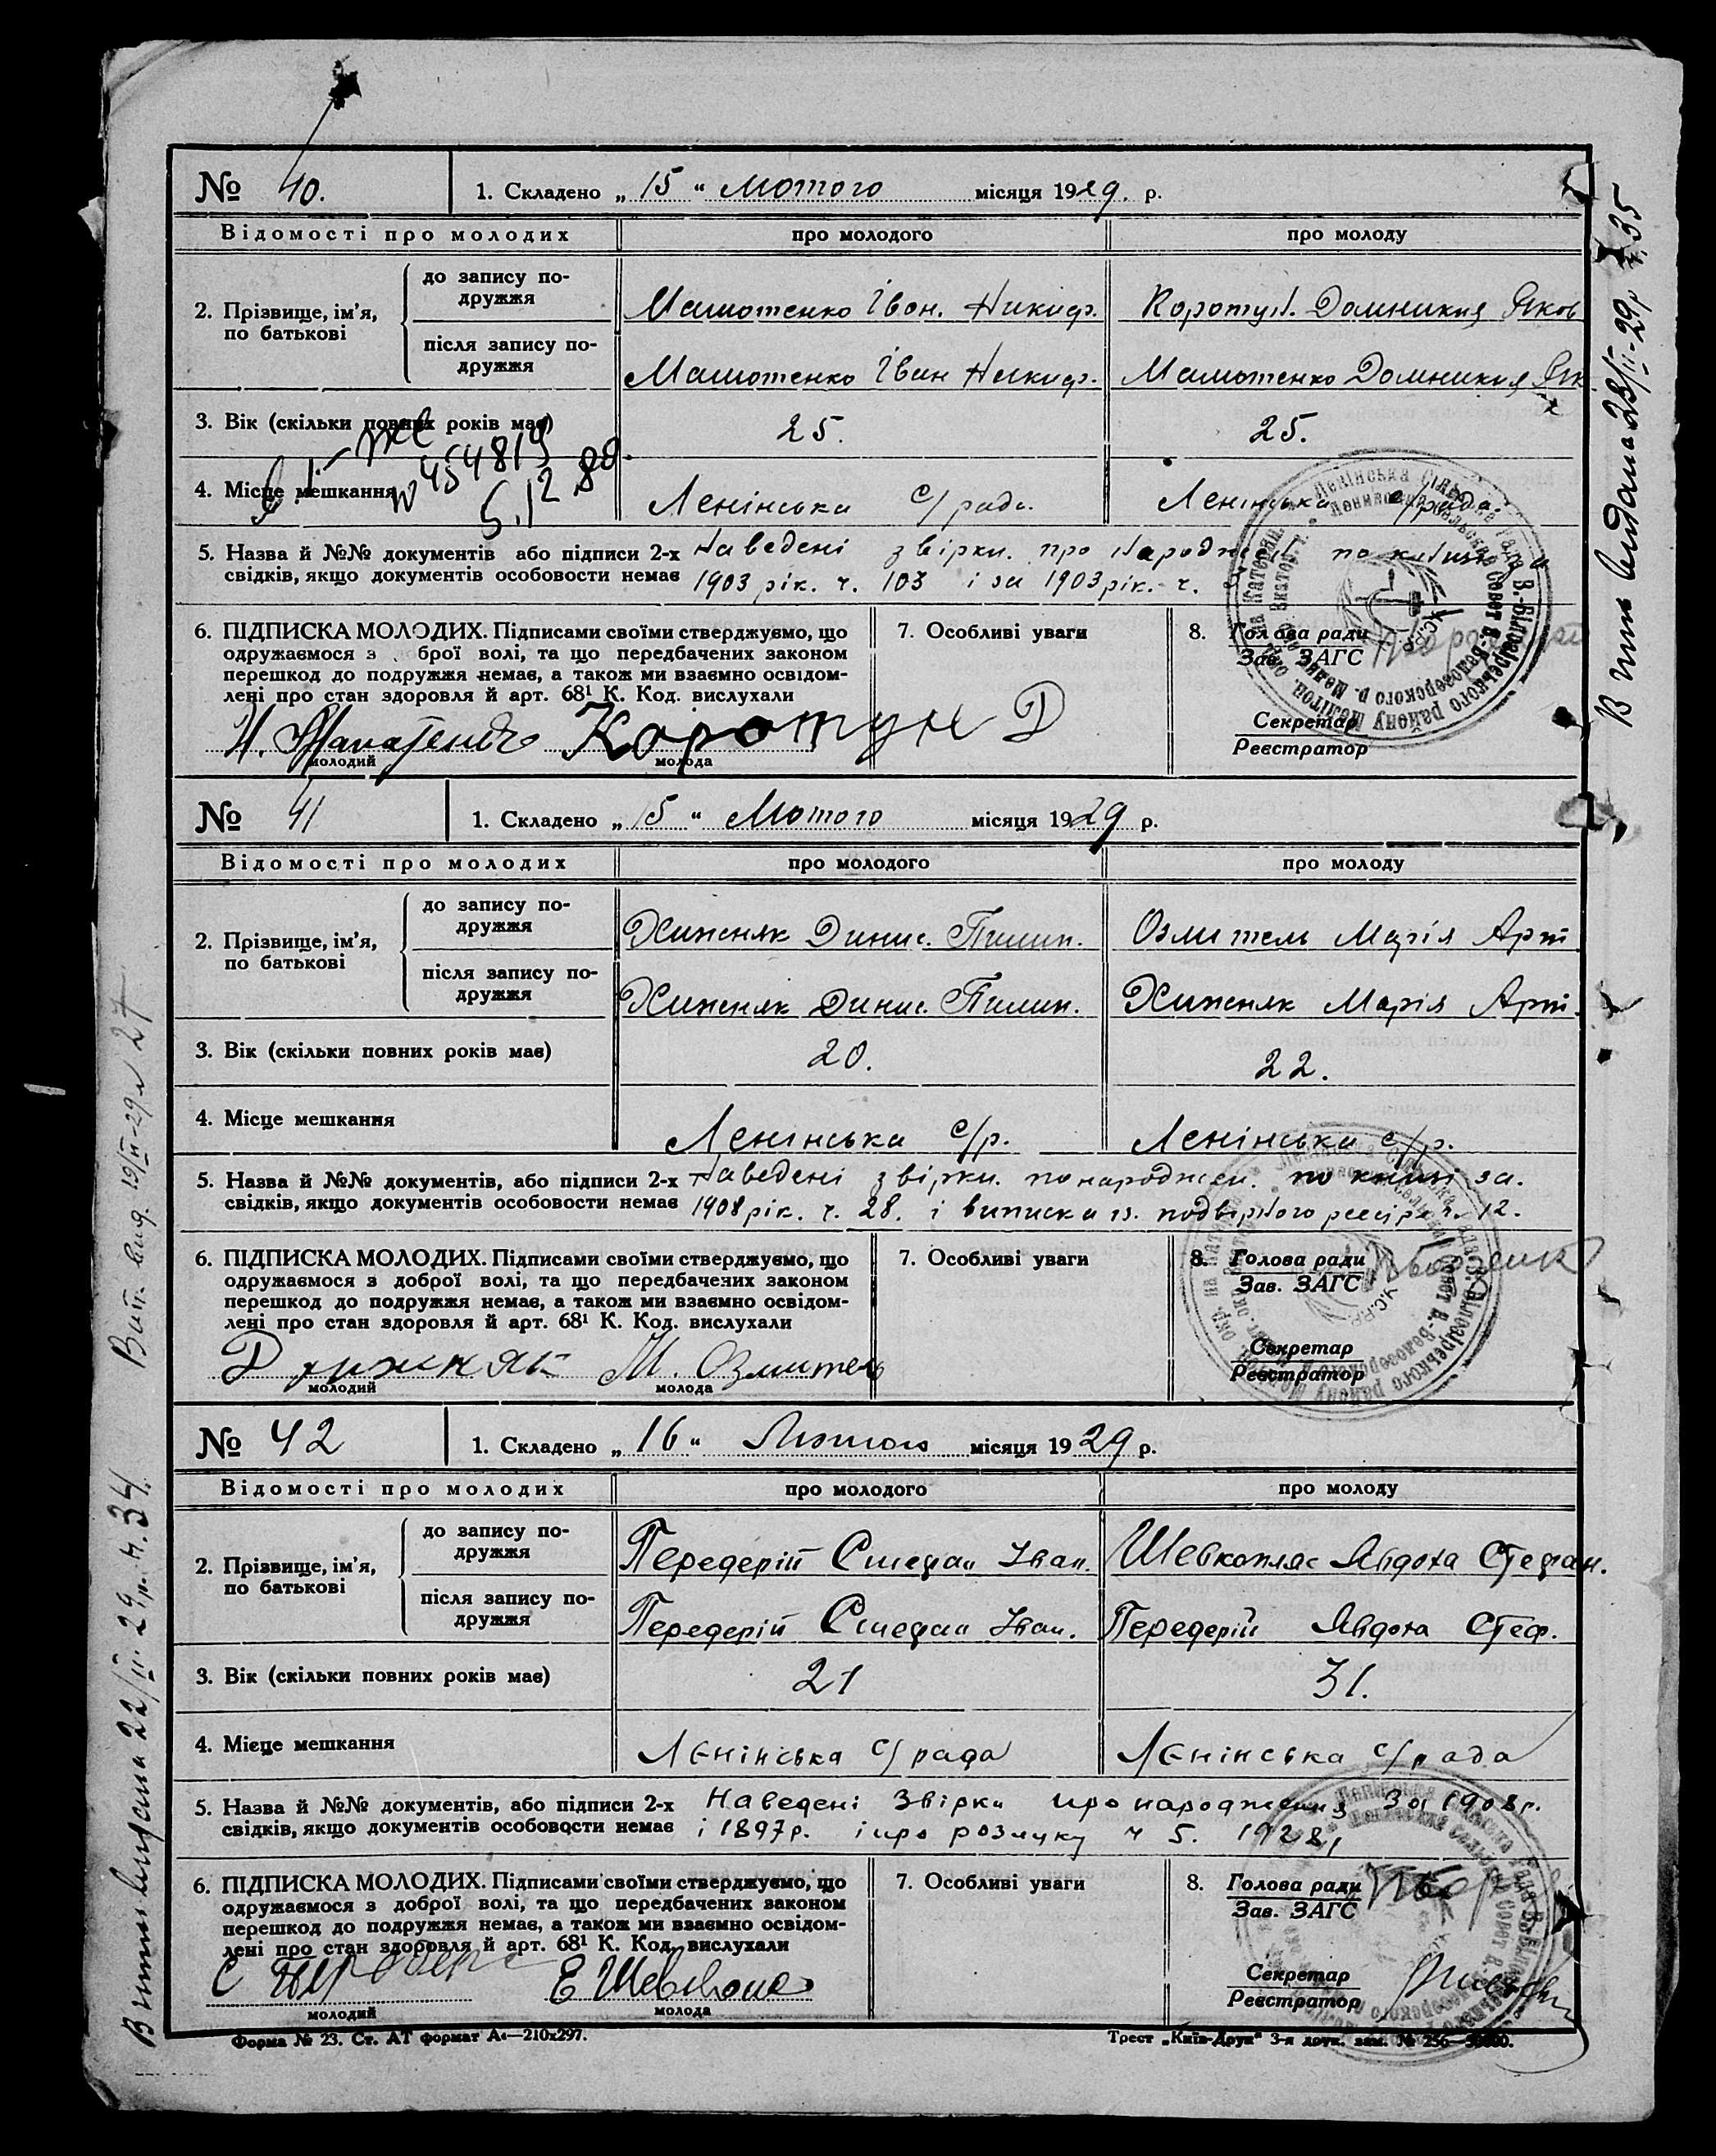 № 40. 1. Складено „ 15 “ Лютого місяця 1929. р.
Відомості про молодих про молодого про молоду
2. Прізвище, ім'я, по батькові
до запису по-
дружжя
Іван. Никиф. Коротун. Домникия Яков
після запису по-
дружжя
Іван Никиф. Домникия Як
3. Вік (скільки повних років має) 25. 25.
4. Місце мешкання Ленінська с/рада. Ленінська с/рада.
454819
5.12.88
5. Назва й №№ документів або підписи 2-х Наведені звірки. про народжен. по книзі
свідків, якщо документів особовости немає 1903 рік. ч. 103 і за 1903 рік. ч.
6. ПІДПИСКА МОЛОДИХ. Підписами своїми стверджуємо, що
одружаємося з брої волі, та що передбачених законом
перешкод до подружжя немає, а також ми взаємно освідом-
лені про стан здоровля й арт. 68¹ К. Код. вислухали
Коротун Д
молодий молода
7. Особливі уваги
8. Голова ради
Зав. ЗАГС
Секретар
Реєстратор
№ 41 1. Складено „ 15 “ Лютого місяця 1929 р.
Відомості про молодих про молодого про молоду
2. Прізвище, ім'я, по батькові
до запису по-
дружжя
Хижняк Динис. Пилип. Озлитель Марія Арт
після запису по-
дружжя
Хижняк Динис. Пилип. Хижняк Марія Арт.
3. Вік (скільки повних років має) 20. 22.
4. Місце мешкання Ленінська с/р. Ленінська с/р.
5. Назва й №№ документів, або підписи 2-х Наведені звірки. по народжен. по книзі за.
свідків, якщо документів особовости немає 1908 рік. ч. 28. і виписка із. подвірного реєстр ч. 12.
6. ПІДПИСКА МОЛОДИХ. Підписами своїми стверджуємо, що
одружаємося з доброї волі, та що передбачених законом
перешкод до подружжя немає, а також ми взаємно освідом-
лені про стан здоровля й арт. 68¹ К. Код. вислухали
М. Озлитель
молодий молода
7. Особливі уваги
8. Голова ради
Зав. ЗАГС
Секретар
Реєстратор
№ 42 1. Складено „ 16 “ Лютого місяця 1929 р.
Відомості про молодих про молодого про молоду
2. Прізвище, ім'я, по батькові
до запису по-
дружжя
Передерій Стефан Іван. Шевкопляс Явдоха Стефан.
після запису по-
дружжя
Передерій Стефан Іван. Передерій Явдоха Стеф.
3. Вік (скільки повних років має) 21 31.
4. Місце мешкання Ленінська с/рада Ленінська с/рада
5. Назва й №№ документів, або підписи 2-х Наведені звірки про народження За 1908 р.
свідків, якщо документів особовости немає і 1897 р. і про розлуку ч 5. 1928
6. ПІДПИСКА МОЛОДИХ. Підписами своїми стверджуємо, що
одружаємося з доброї волі, та що передбачених законом
перешкод до подружжя немає, а також ми взаємно освідом-
лені про стан здоровля й арт. 68¹ К. Код. вислухали
молодий молода
7. Особливі уваги
8. Голова ради
Зав. ЗАГС
Секретар
Реєстратор
Форма № 23. Ст. АТ формат А₄—210х297. Трест „Київ-Друк“ 3-я друк. зам. № 256—
Витяг видано 28/II-29р ч 35
Вит. вид. 19/II-29 р 27
Витяг видано 22/II 29р. ч. 34.